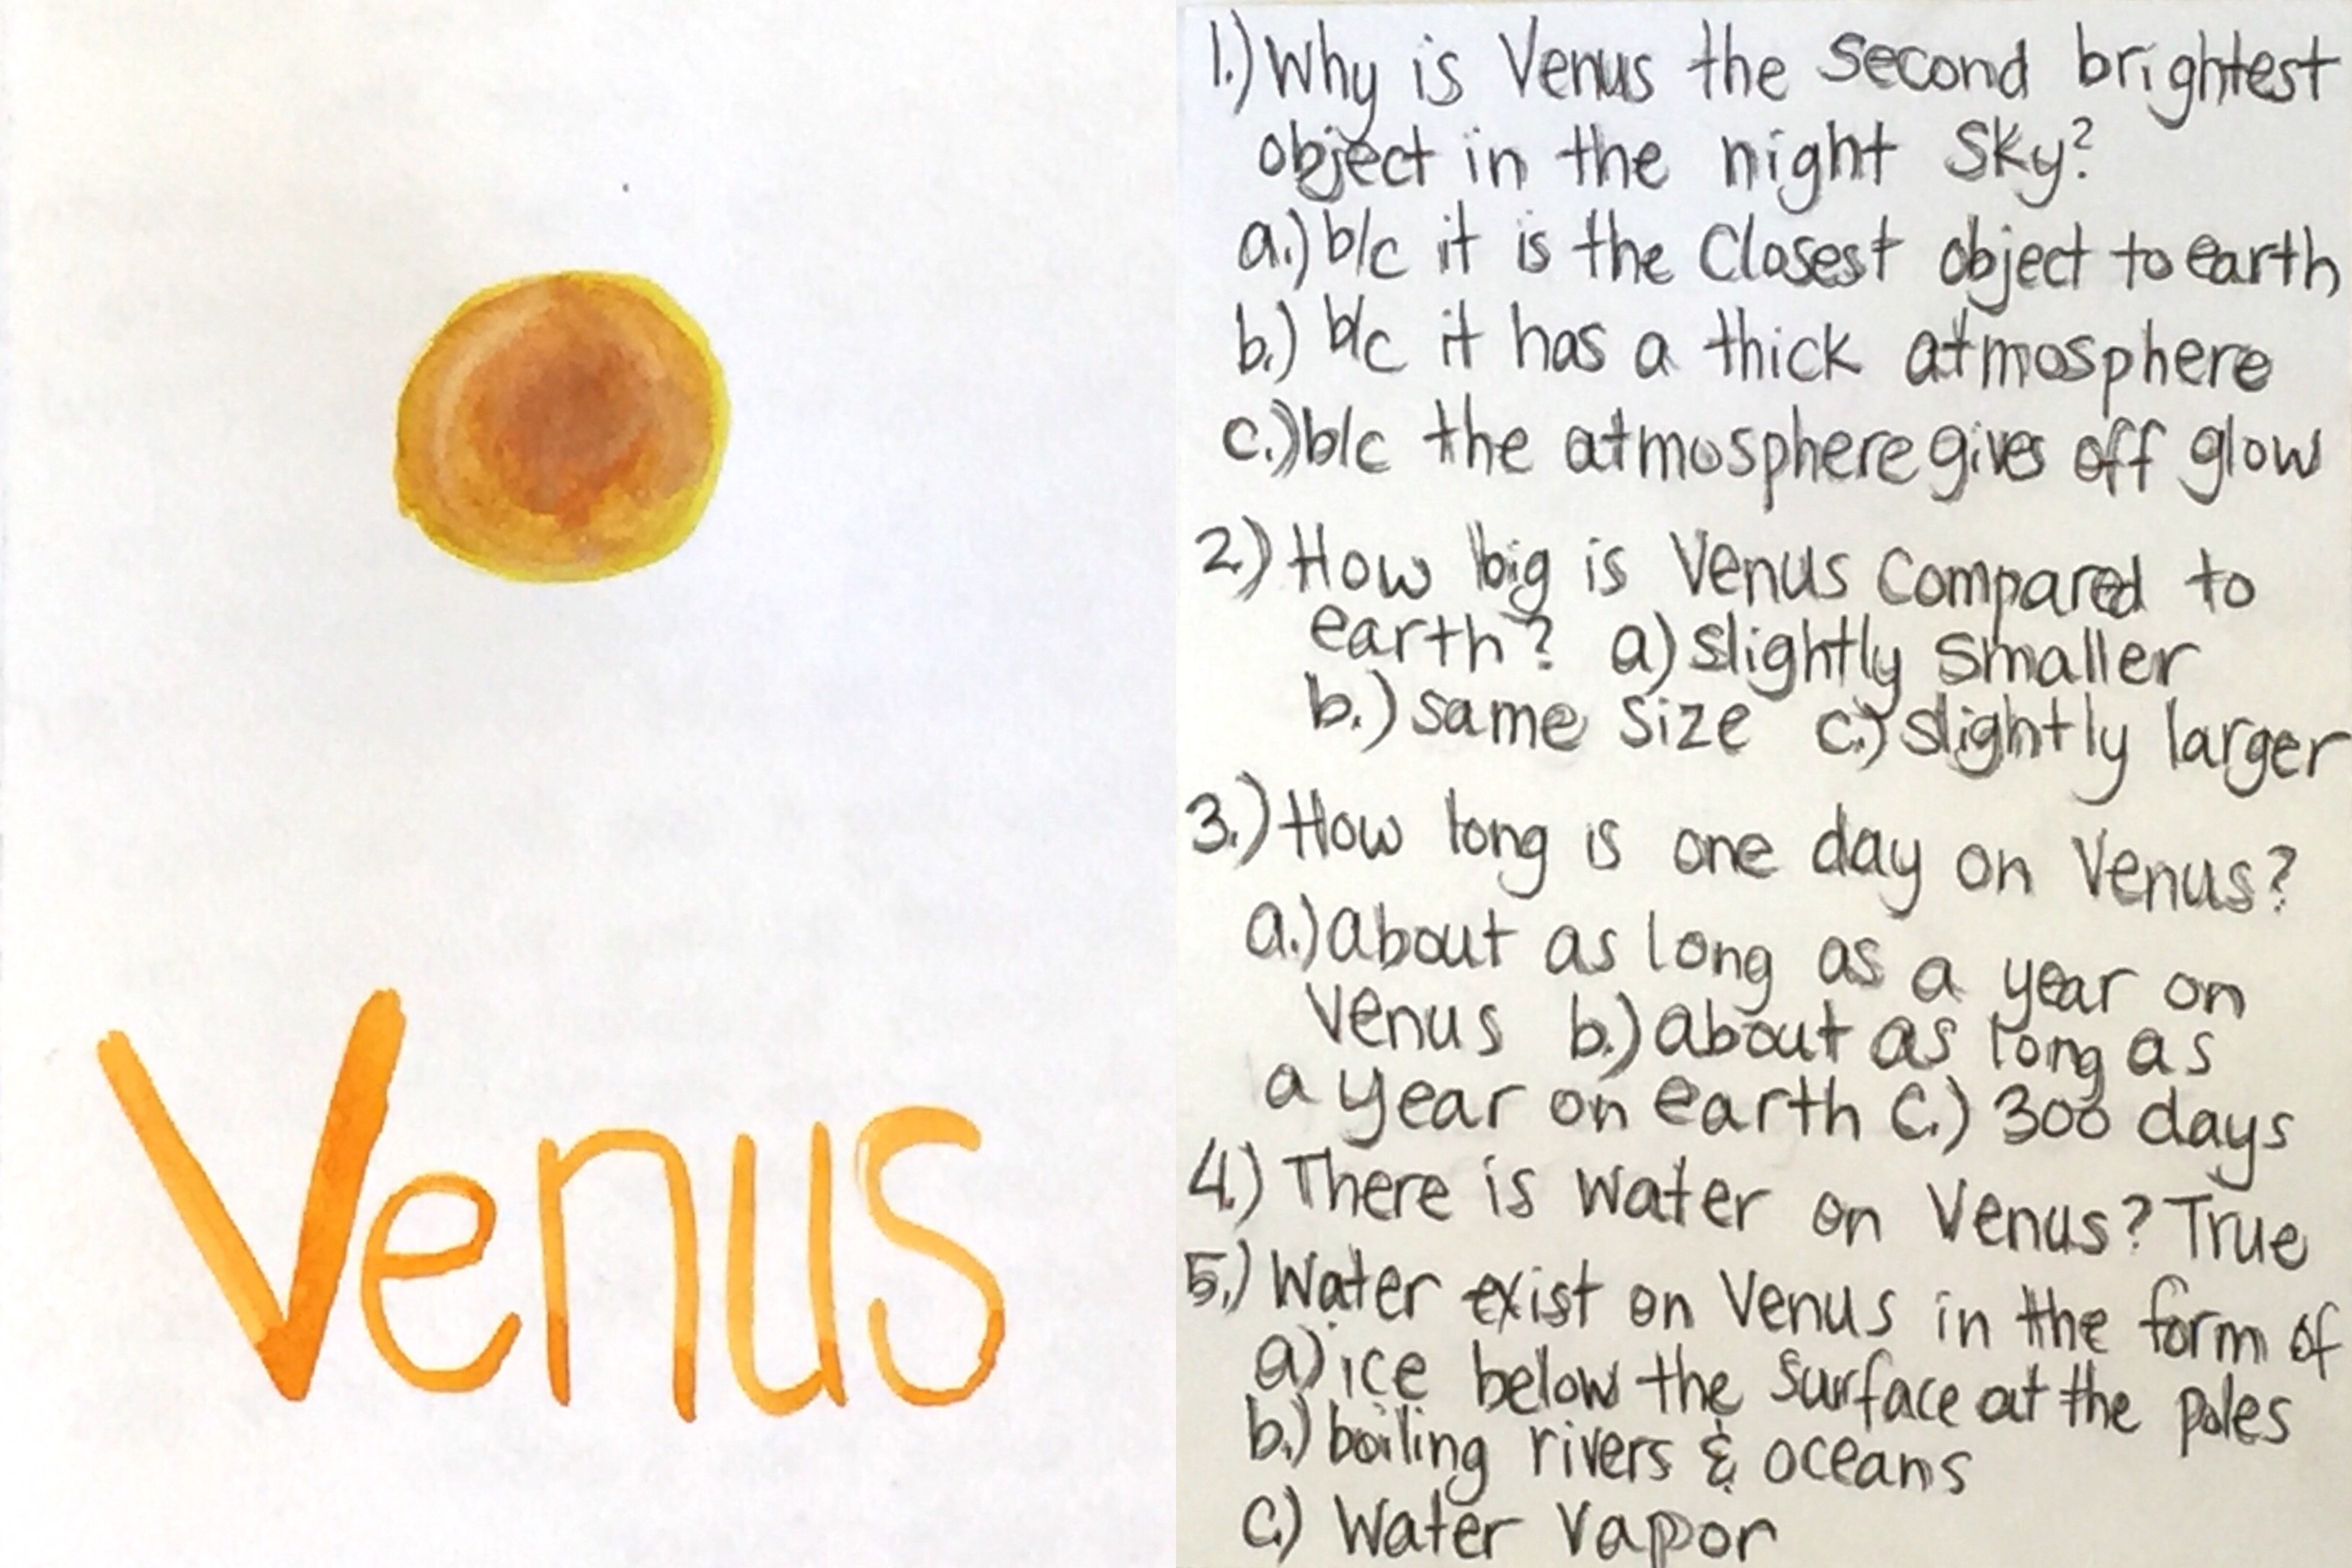 Venus
1.) Why is Venus the second brightest
object in the night sky?
a.) b/c it is the closest object to earth
b.) b/c it has a thick atmosphere
c.) b/c the atmosphere gives off glow
2.) How big is Venus compared to
earth? a) slightly smaller
b.) same size c.) slightly larger
3.) How long is one day on Venus?
a.) about as long as a year on
Venus b.) about as long as
a year on earth c.) 300 days
4.) There is water on Venus? True
5.) Water exist on Venus in the form of
a) ice below the surface at the poles
b.) boiling rivers & oceans
c.) Water Vapor